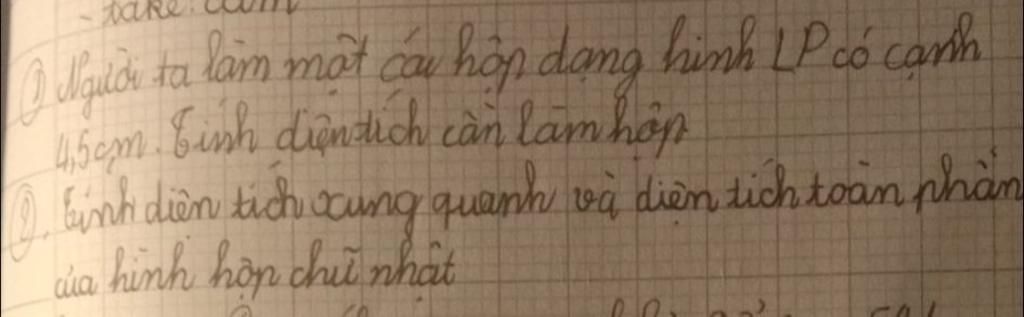 - take care
① Người ta làm một cái hộp dạng hình LP có cạnh
4,5cm. Tính diện tích cần làm hộp
②. Tính diện tích xung quanh và diện tích toàn phần
của hình hộp chữ nhật